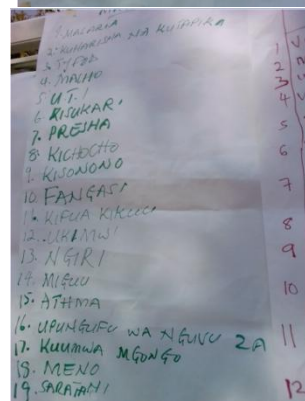 1. MALARIA
2. KUHARISHA NA KUTAPIKA
3. TYFOD
4. MACHO
5. U.T.I
6. KISUKARI
7. PRESHA
8. KICHOCHO
9. KISONONO
10. FANGASI
11. KIFUA KIKUU
12. UKIMWI
13. NGIRI
14. MIGUU
15. ATHMA
16. UPUNGUFU WA NGUVU ZA
17. KUUMWA MGONGO
18. MENO
19. SARATANI
1
2
3
4
5
6
7
8
9
10
11
12